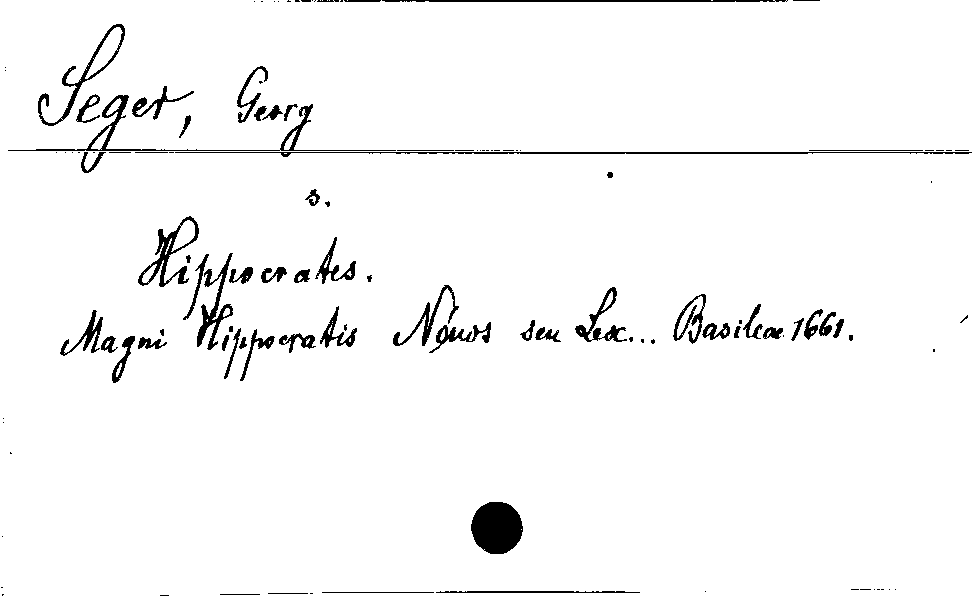 Seger, Georg
s.
Hippocrates.
Magni Hippocratis Νόμος seu Lex... Basileae 1661.